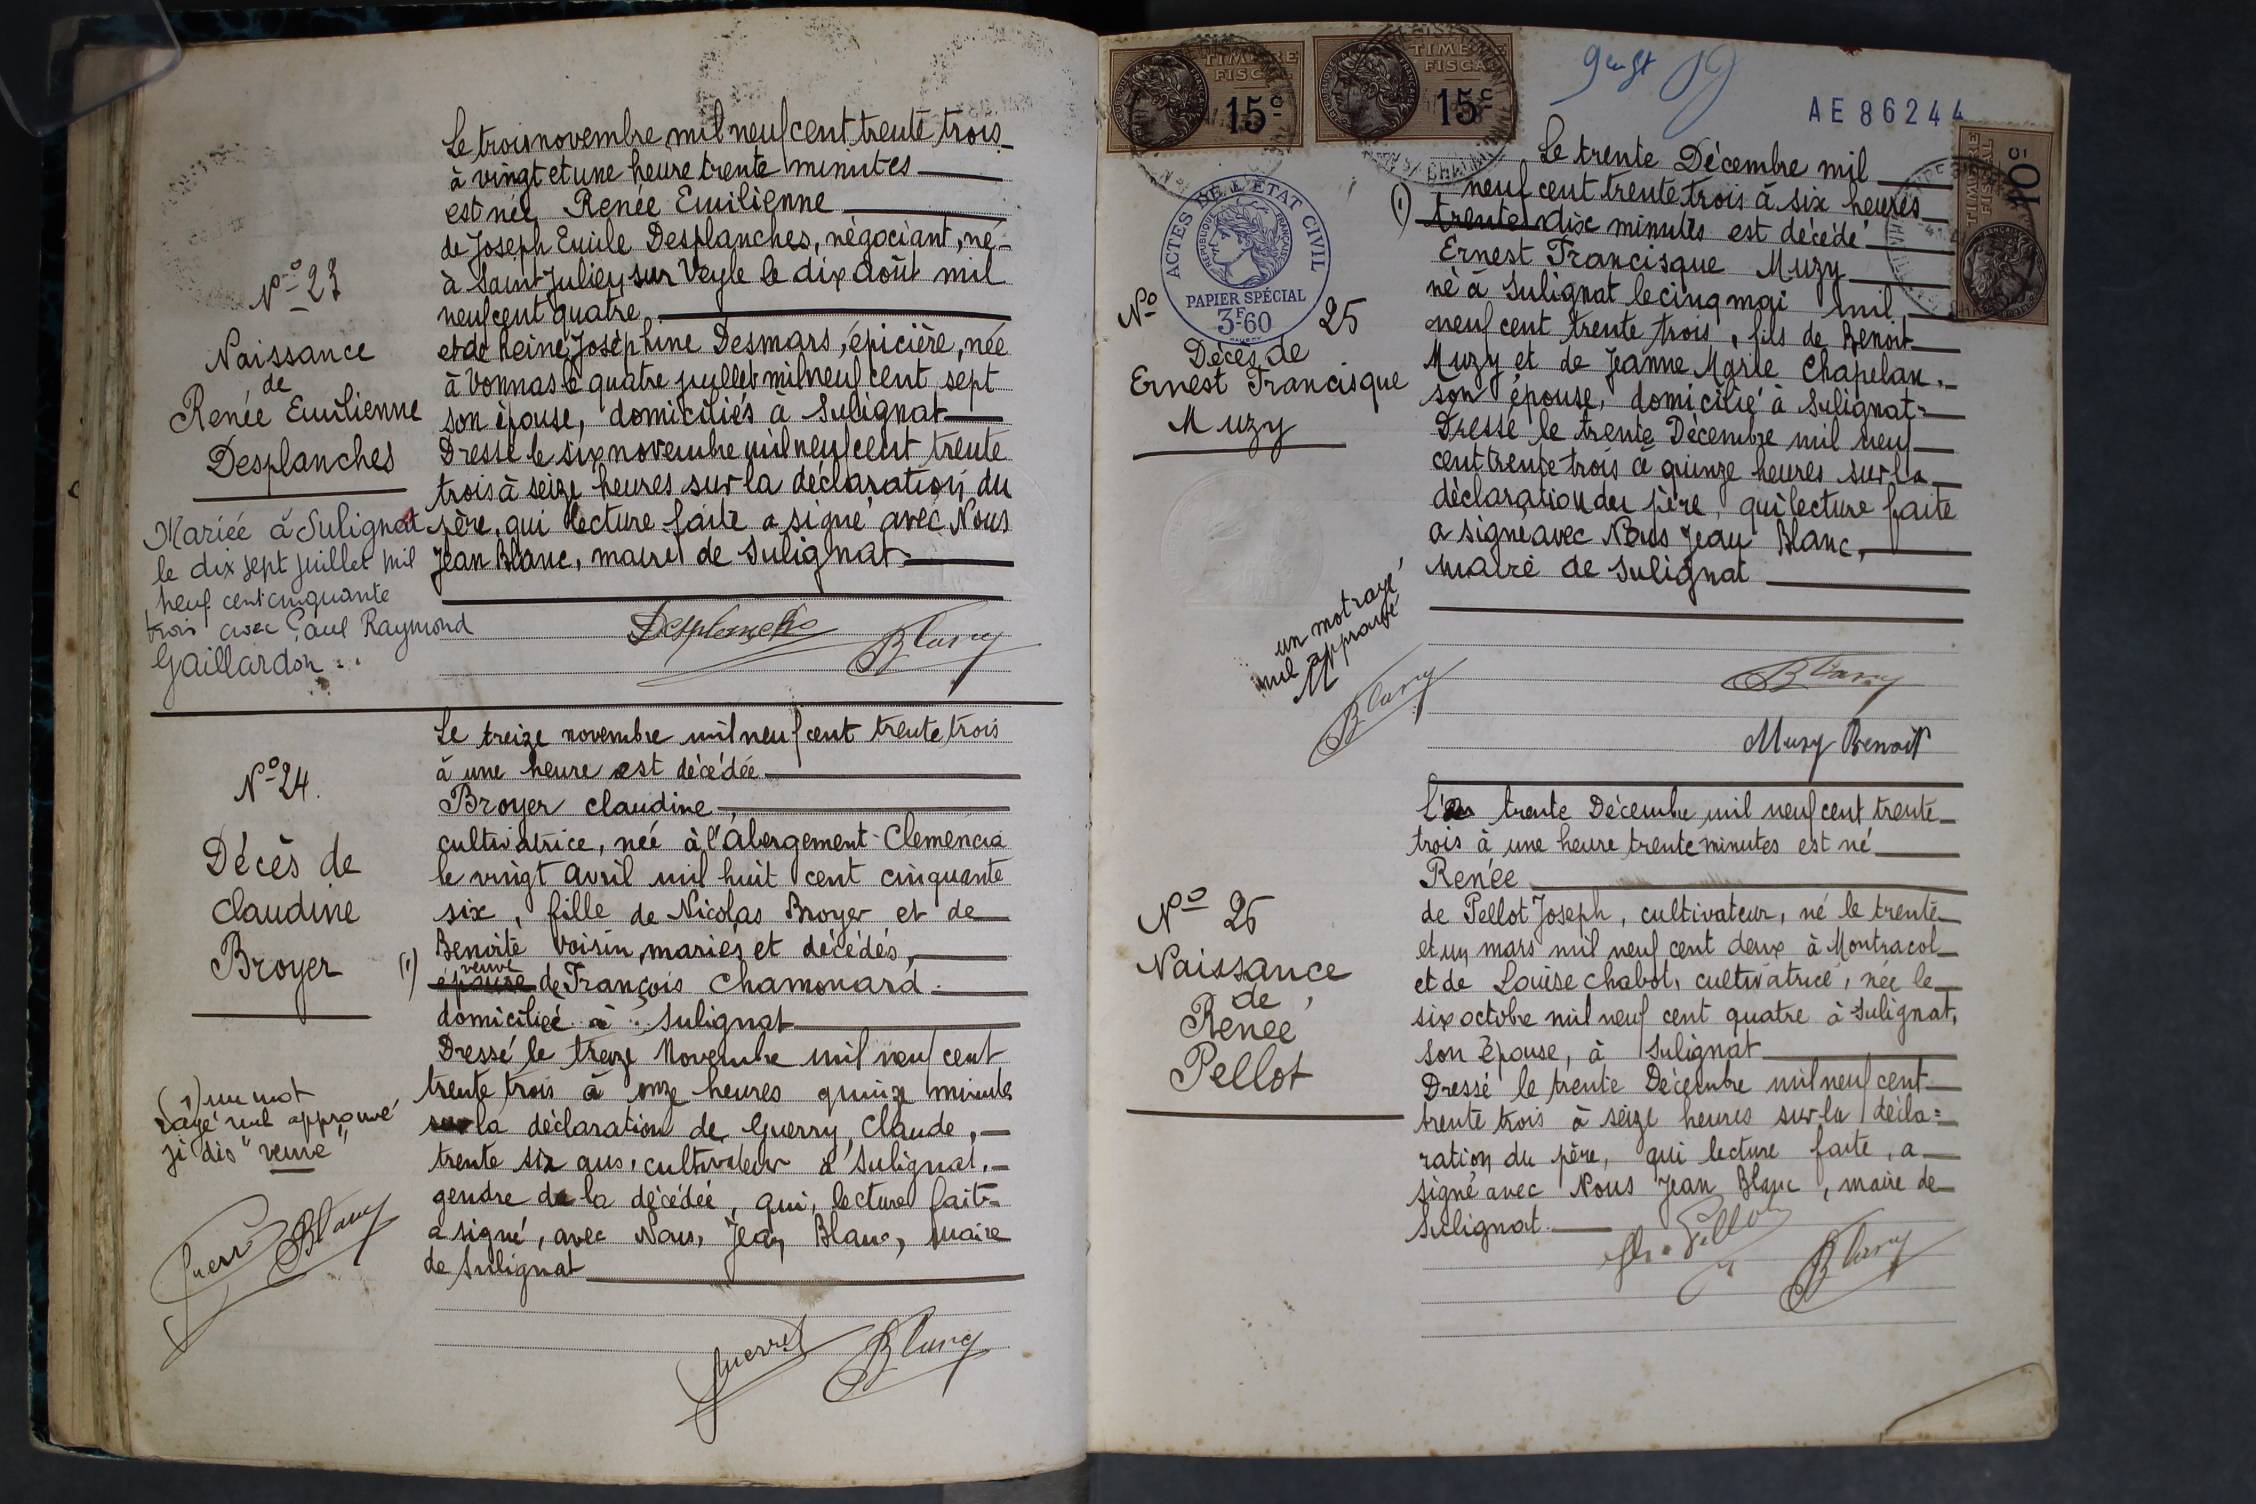 Le trois novembre mil neuf cent trente trois
à vingt et une heure trente minutes
est née Renée Emilienne
de Joseph Emile Desplanches, négociant, né
à Saint Julien sur Veyle le dix août mil
neuf cent quatre
et de Reine Joséphine Desmars, épicière, née
à Vonnas le quatre juillet mil neuf cent sept
son épouse, domiciliés à Sulignat
Dressé le six novembre mil neuf cent trente
trois à seize heures sur la déclaration du
père, qui lecture faite a signé avec Nous
Jean Blanc, maire de Sulignat
Desplanches Blanc
N° 23
Naissance
de
Renée Emilienne
Desplanches
Mariée à Sulignat
le dix sept juillet mil
neuf cent cinquante
trois avec Paul Raymond
Gaillardon
Le treize novembre mil neuf cent trente trois
à une heure est décédée
Broyer Claudine,
cultivatrice, née à l'Abergement-Clemencia
le vingt avril mil huit cent cinquante
six, fille de Nicolas Broyer et de
Benoite Voisin, mariés et décédés,
veuve
(1) épouse de François Chamonard.
domiciliée à Sulignat
Dressé le treize Novembre mil neuf cent
trente trois à onze heures quinze minutes
sur la déclaration de Guerry, Claude,
trente six ans, cultivateur à Sulignat,
gendre de la décédée, qui, lecture faite
a signé, avec Nous, Jean Blanc, maire
de Sulignat
Blanc
N° 24.
Décès de
Claudine
Broyer
(1) un mot
rayé nul approuvé
"veuve"
Blanc
TIMBRE
FISCAL
15c
TIMBRE
FISCAL
15c
AE 86244
TIMBRE
FISCAL
ACTES DE L'ÉTAT CIVIL
RÉPUBLIQUE FRANÇAISE
PAPIER SPÉCIAL
3F60
N° 25
Décès de
Ernest Francisque
Muzy
Le trente Décembre mil
neuf cent trente trois à six heures
(1) trente dix minutes est décédé
Ernest Francisque Muzy
né à Sulignat le cinq mai mil
neuf cent trente trois, fils de Benoit
Muzy et de Jeanne Marie Chapelan,
son épouse, domicilié à Sulignat
Dressé le trente Décembre mil neuf
cent trente trois à quinze heures sur la
déclaration du père, qui lecture faite
a signé avec Nous Jean Blanc,
maire de Sulignat
un mot rayé
nul approuvé
M
Blanc
Blanc
Muzy Benoit
N° 26
Naissance
de
Renée
Pellot
Le trente Décembre mil neuf cent trente
trois à une heure trente minutes est né
Renée
de Pellot Joseph, cultivateur, né le trente
et un mars mil neuf cent deux à Montracol
et de Louise Chabot, cultivatrice, née le
six octobre mil neuf cent quatre à Sulignat,
son Epouse, à Sulignat
Dressé le trente Décembre mil neuf cent
trente trois à seize heures sur la décla=
ration du père, qui lecture faite, a
signé avec Nous Jean Blanc, maire de
Sulignat.
Pellot
Blanc